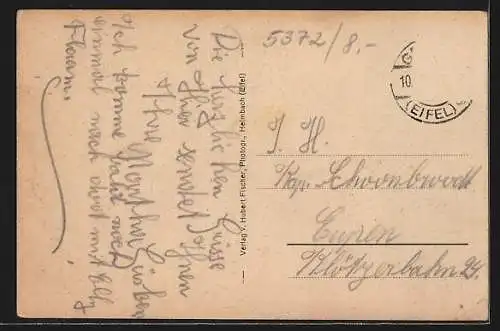 Die herzlichen Grüsse
von hier sendet Ihnen
Ihre Martha
Ich komme bald noch
einmal nach dort mit Elly
Verlag v. Hubert Fischer, Photogr., Heimbach (Eifel)
5372/8,-
10.
(EIFEL)
J. H.
Kap. Schoonbroodt
Eupen
Klötzerbahn 24.